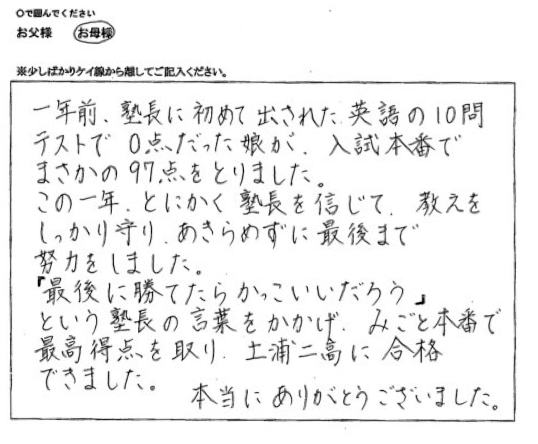 ○で囲んでください
お父様 お母様
※少しばかりケイ線から離してご記入ください。
一年前、塾長に初めて出された英語の10問
テストで0点だった娘が、入試本番で
まさかの97点をとりました。
この一年、とにかく塾長を信じて、教えを
しっかり守り、あきらめずに最後まで
努力をしました。
『最後に勝てたらかっこいいだろう』
という塾長の言葉をかかげ、みごと本番で
最高得点を取り、土浦二高に合格
できました。
本当にありがとうございました。